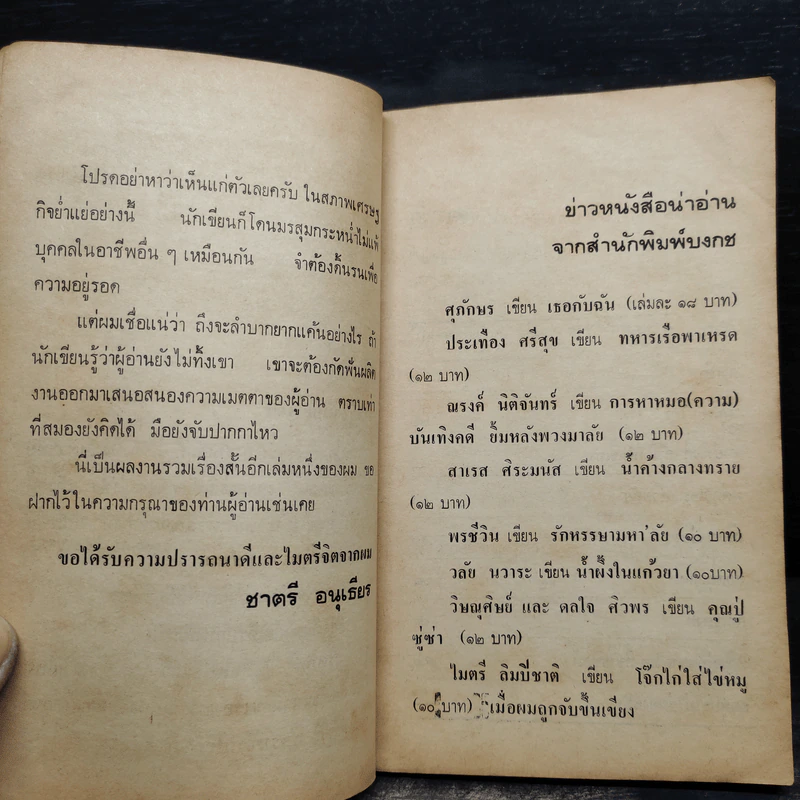 โปรดอย่าหาว่าเห็นแก่ตัวเลยครับ ในสภาพเศรษฐ
กิจย่ำแย่อย่างนี้ นักเขียนก็โดนมรสุมกระหน่ำไม่แพ้
บุคคลในอาชีพอื่น ๆ เหมือนกัน จำต้องดิ้นรนเพื่อ
ความอยู่รอด
แต่ผมเชื่อแน่ว่า ถึงจะลำบากยากแค้นอย่างไร ถ้า
นักเขียนรู้ว่าผู้อ่านยังไม่ทิ้งเขา เขาจะต้องกัดฟันผลิต
งานออกมาเสนอสนองความเมตตาของผู้อ่าน ตราบเท่า
ที่สมองยังคิดได้ มือยังจับปากกาไหว
นี่เป็นผลงานรวมเรื่องสั้นอีกเล่มหนึ่งของผม ขอ
ฝากไว้ในความกรุณาของท่านผู้อ่านเช่นเคย
ขอได้รับความปรารถนาดีและไมตรีจิตจากผม
ชาตรี อนุเธียร
ข่าวหนังสือน่าอ่าน
จากสำนักพิมพ์บงกช
ศุภักษร เขียน เธอกับฉัน (เล่มละ ๑๘ บาท)
ประเทือง ศรีสุข เขียน ทหารเรือพาเหรด
(๑๒ บาท)
ณรงค์ นิติจันทร์ เขียน การหาหมอ(ความ)
บันเทิงคดี ยิ้มหลังพวงมาลัย (๑๒ บาท)
สาเรส ศิระมนัส เขียน น้ำค้างกลางทราย
(๑๒ บาท)
พรชีวิน เขียน รักหรรษามหา'ลัย (๑๐ บาท)
วลัย นวาระ เขียน น้ำผึ้งในแก้วยา (๑๐บาท)
วิษณุศิษย์ และ ดลใจ ศิวพร เขียน คุณปู่
ซู่ซ่า (๑๒ บาท)
ไมตรี ลิมปิชาติ เขียน โจ๊กไก่ใส่ไข่หมู
(๑๐ บาท) เมื่อผมถูกจับขึ้นเขียง